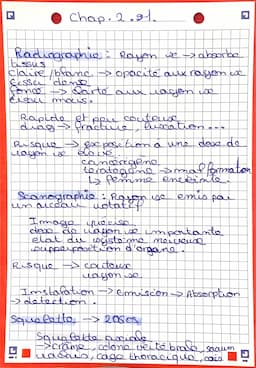 Chap. 2.
Radiographie : Rayon x → absorbe
tissus
claire/blanc → opacité aux rayon x
tissu dense
foncé → aux rayon x
tissu mous.
Rapide et peu couteux
diag → fracture, luxation...
Risque → exposition a une dose de
rayon x élevé
cancérogène
tératogène → malformation
↳ femme enceinte.
Scanographie : Rayon x emis par
un anneau rotatif
Image précise
dose de rayon x importante
etat du système nerveux
superposition d'organe.
Risque → couteux
rayon x
Installation → Emission → Absorption
→ détection.
Squelette → 206os
Squelette axiale
→ crâne, colone vertébrale, sacrum
, cage thoracique,